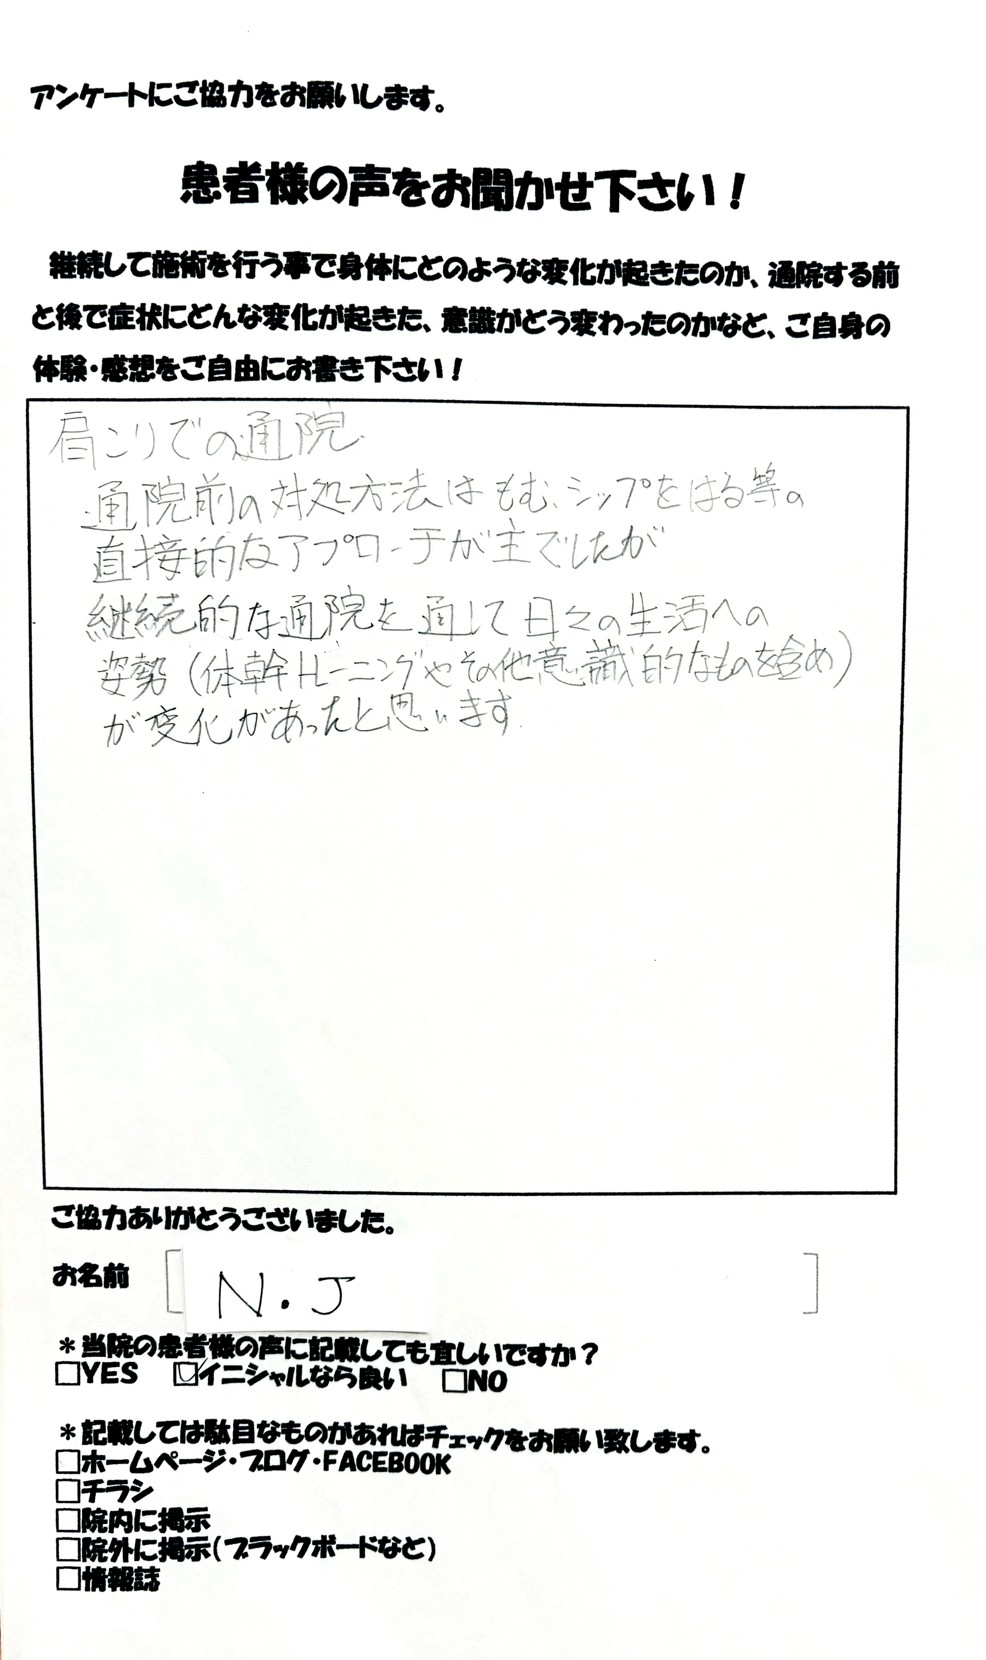 アンケートにご協力をお願いします。
患者様の声をお聞かせ下さい!
継続して施術を行う事で身体にどのような変化が起きたのか、通院する前
と後で症状にどんな変化が起きた、意識がどう変わったのかなど、ご自身の
体験・感想をご自由にお書き下さい!
肩こりでの通院.
通院前の対処方法はもむ、シップをはる等の
直接的なアプローチが主でしたが
継続的な通院を通して日々の生活への
姿勢(体幹トレーニングやその他意識的なものを含め)
が変化があったと思います.
ご協力ありがとうございました。
お名前 [ N.J ]
*当院の患者様の声に記載しても宜しいですか?
□YES ☑イニシャルなら良い □NO
*記載しては駄目なものがあればチェックをお願い致します。
□ホームページ・ブログ・FACEBOOK
□チラシ
□院内に掲示
□院外に掲示(ブラックボードなど)
□情報誌